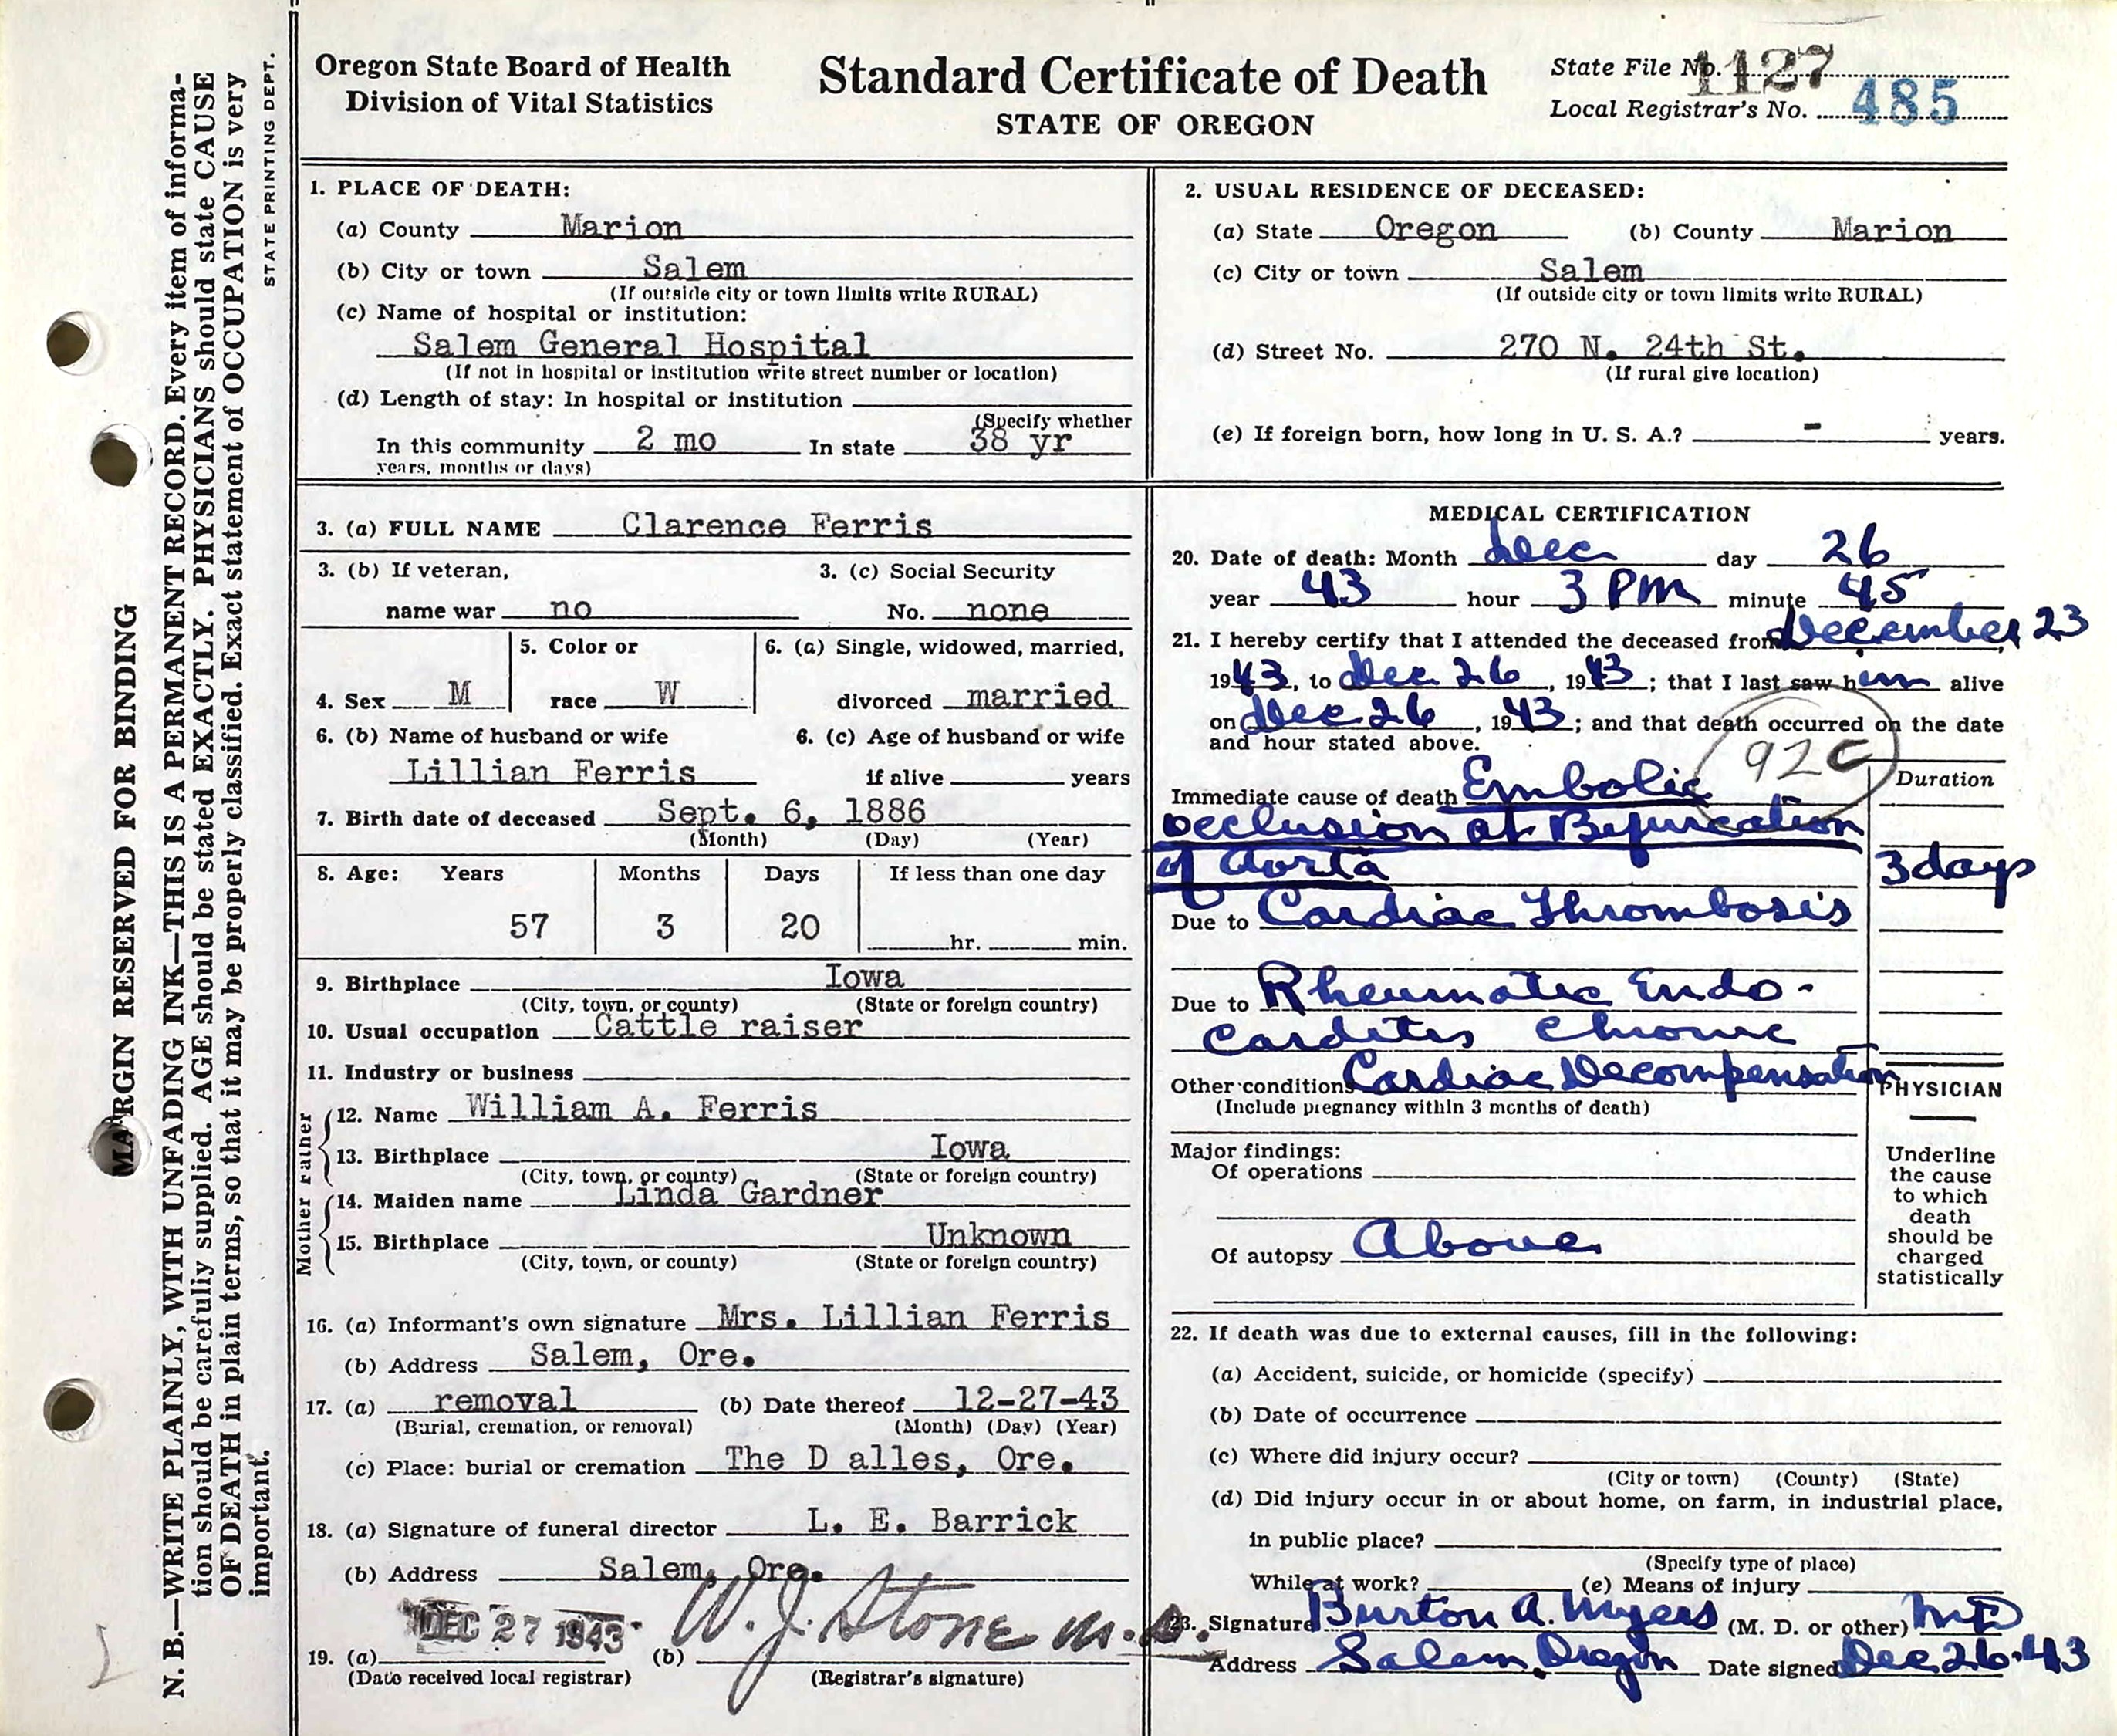 Oregon State Board of Health
Division of Vital Statistics
Standard Certificate of Death
STATE OF OREGON
State File No. 1127
Local Registrar's No. 485
N. B.—WRITE PLAINLY, WITH UNFADING INK—THIS IS A PERMANENT RECORD. Every item of informa-
tion should be carefully supplied. AGE should be stated EXACTLY. PHYSICIANS should state CAUSE
OF DEATH in plain terms, so that it may be properly classified. Exact statement of OCCUPATION is very
important.
MARGIN RESERVED FOR BINDING
STATE PRINTING DEPT.
1. PLACE OF DEATH:
(a) County Marion
(b) City or town Salem
(If outside city or town limits write RURAL)
(c) Name of hospital or institution:
Salem General Hospital
(If not in hospital or institution write street number or location)
(d) Length of stay: In hospital or institution
(Specify whether
In this community 2 mo In state 38 yr
years, months or days)
2. USUAL RESIDENCE OF DECEASED:
(a) State Oregon (b) County Marion
(c) City or town Salem
(If outside city or town limits write RURAL)
(d) Street No. 270 N. 24th St.
(If rural give location)
(e) If foreign born, how long in U. S. A.? - years.
3. (a) FULL NAME Clarence Ferris
3. (b) If veteran, 3. (c) Social Security
name war no No. none
5. Color or 6. (a) Single, widowed, married,
4. Sex M race W divorced married
6. (b) Name of husband or wife 6. (c) Age of husband or wife
Lillian Ferris if alive years
7. Birth date of deceased Sept. 6, 1886
(Month) (Day) (Year)
8. Age: Years Months Days If less than one day
57 3 20 hr. min.
9. Birthplace Iowa
(City, town, or county) (State or foreign country)
10. Usual occupation Cattle raiser
11. Industry or business
Mother father
12. Name William A. Ferris
13. Birthplace Iowa
(City, town, or county) (State or foreign country)
14. Maiden name Linda Gardner
15. Birthplace Unknown
(City, town, or county) (State or foreign country)
16. (a) Informant's own signature Mrs. Lillian Ferris
(b) Address Salem, Ore.
17. (a) removal (b) Date thereof 12-27-43
(Burial, cremation, or removal) (Month) (Day) (Year)
(c) Place: burial or cremation The D alles, Ore.
18. (a) Signature of funeral director L. E. Barrick
(b) Address Salem, Ore.
19. (a) DEC 27 1943 (b) W. J. Stone M.D.
(Date received local registrar) (Registrar's signature)
MEDICAL CERTIFICATION
20. Date of death: Month Dec day 26
year 43 hour 3 PM minute 45
21. I hereby certify that I attended the deceased from December 23
1943, to Dec 26, 1943; that I last saw him alive
on Dec 26, 1943; and that death occurred on the date
and hour stated above.
92c
Duration
Immediate cause of death Embolic
Occlusion at Bifurcation
of Aorta 3 days
Due to Cardiac Thrombosis
Due to Rheumatic Endo-
carditis Chronic
Other conditions Cardiac Decompensation
(Include pregnancy within 3 months of death)
PHYSICIAN
Underline
the cause
to which
death
should be
charged
statistically
Major findings:
Of operations
Of autopsy Above
22. If death was due to external causes, fill in the following:
(a) Accident, suicide, or homicide (specify)
(b) Date of occurrence
(c) Where did injury occur?
(City or town) (County) (State)
(d) Did injury occur in or about home, on farm, in industrial place,
in public place?
(Specify type of place)
While at work? (e) Means of injury
23. Signature Burton A. Myers (M. D. or other) MD
Address Salem, Oregon Date signed Dec 26-43